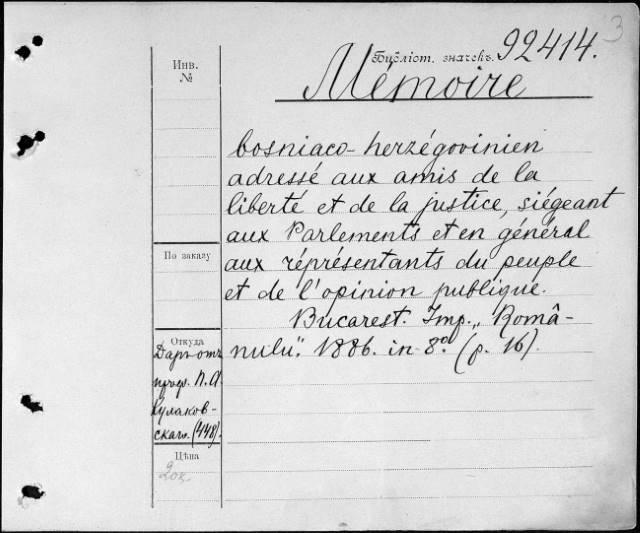 3
Инв.
№
Библіот. значекъ. 92414.
Mémoire
bosniaco-herzégovinien
adressé aux amis de la
liberté et de la justice, siégeant
aux Parlements et en général
По заказу
aux réprésentants du peuple
et de l'opinion publique.
Bucarest. Imp. „Româ-
Откуда
nulu". 1886. in 8°. (p. 16).
Даръ отъ
проф. П. А.
Кулаков-
скаго. (448).
Цѣна
20к.